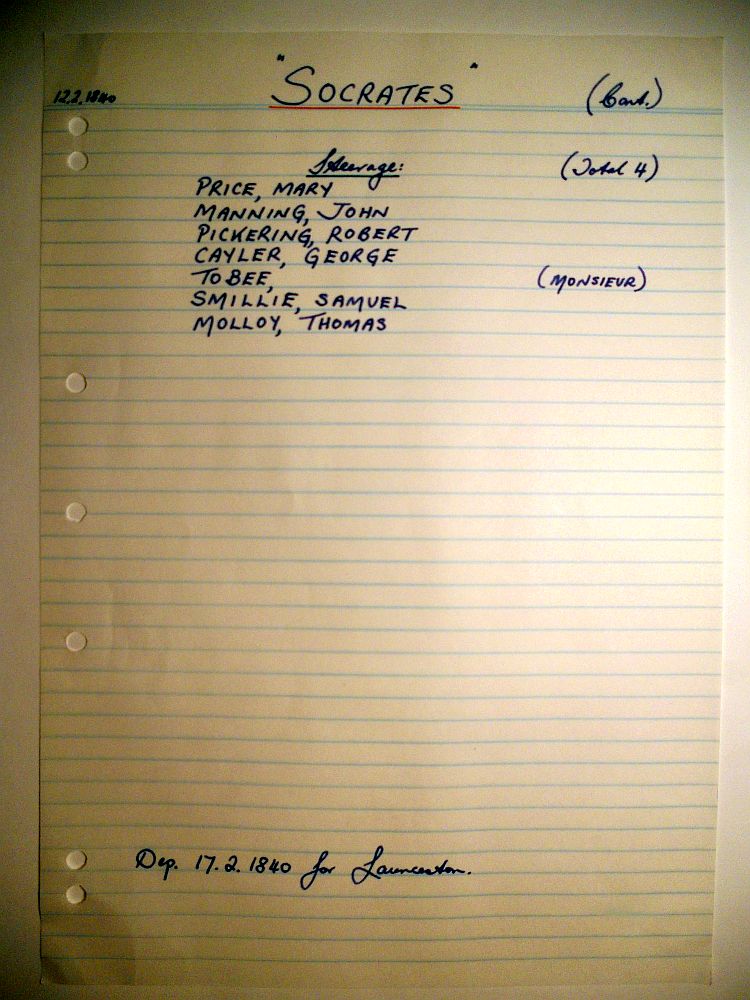 12.2.1840 "SOCRATES" (Cont.)
Steerage: (Total 4)
PRICE, MARY
MANNING, JOHN
PICKERING, ROBERT
CAYLER, GEORGE
TOBEE, (MONSIEUR)
SMILLIE, SAMUEL
MOLLOY, THOMAS
Dep. 17.2.1840 for Launceston.